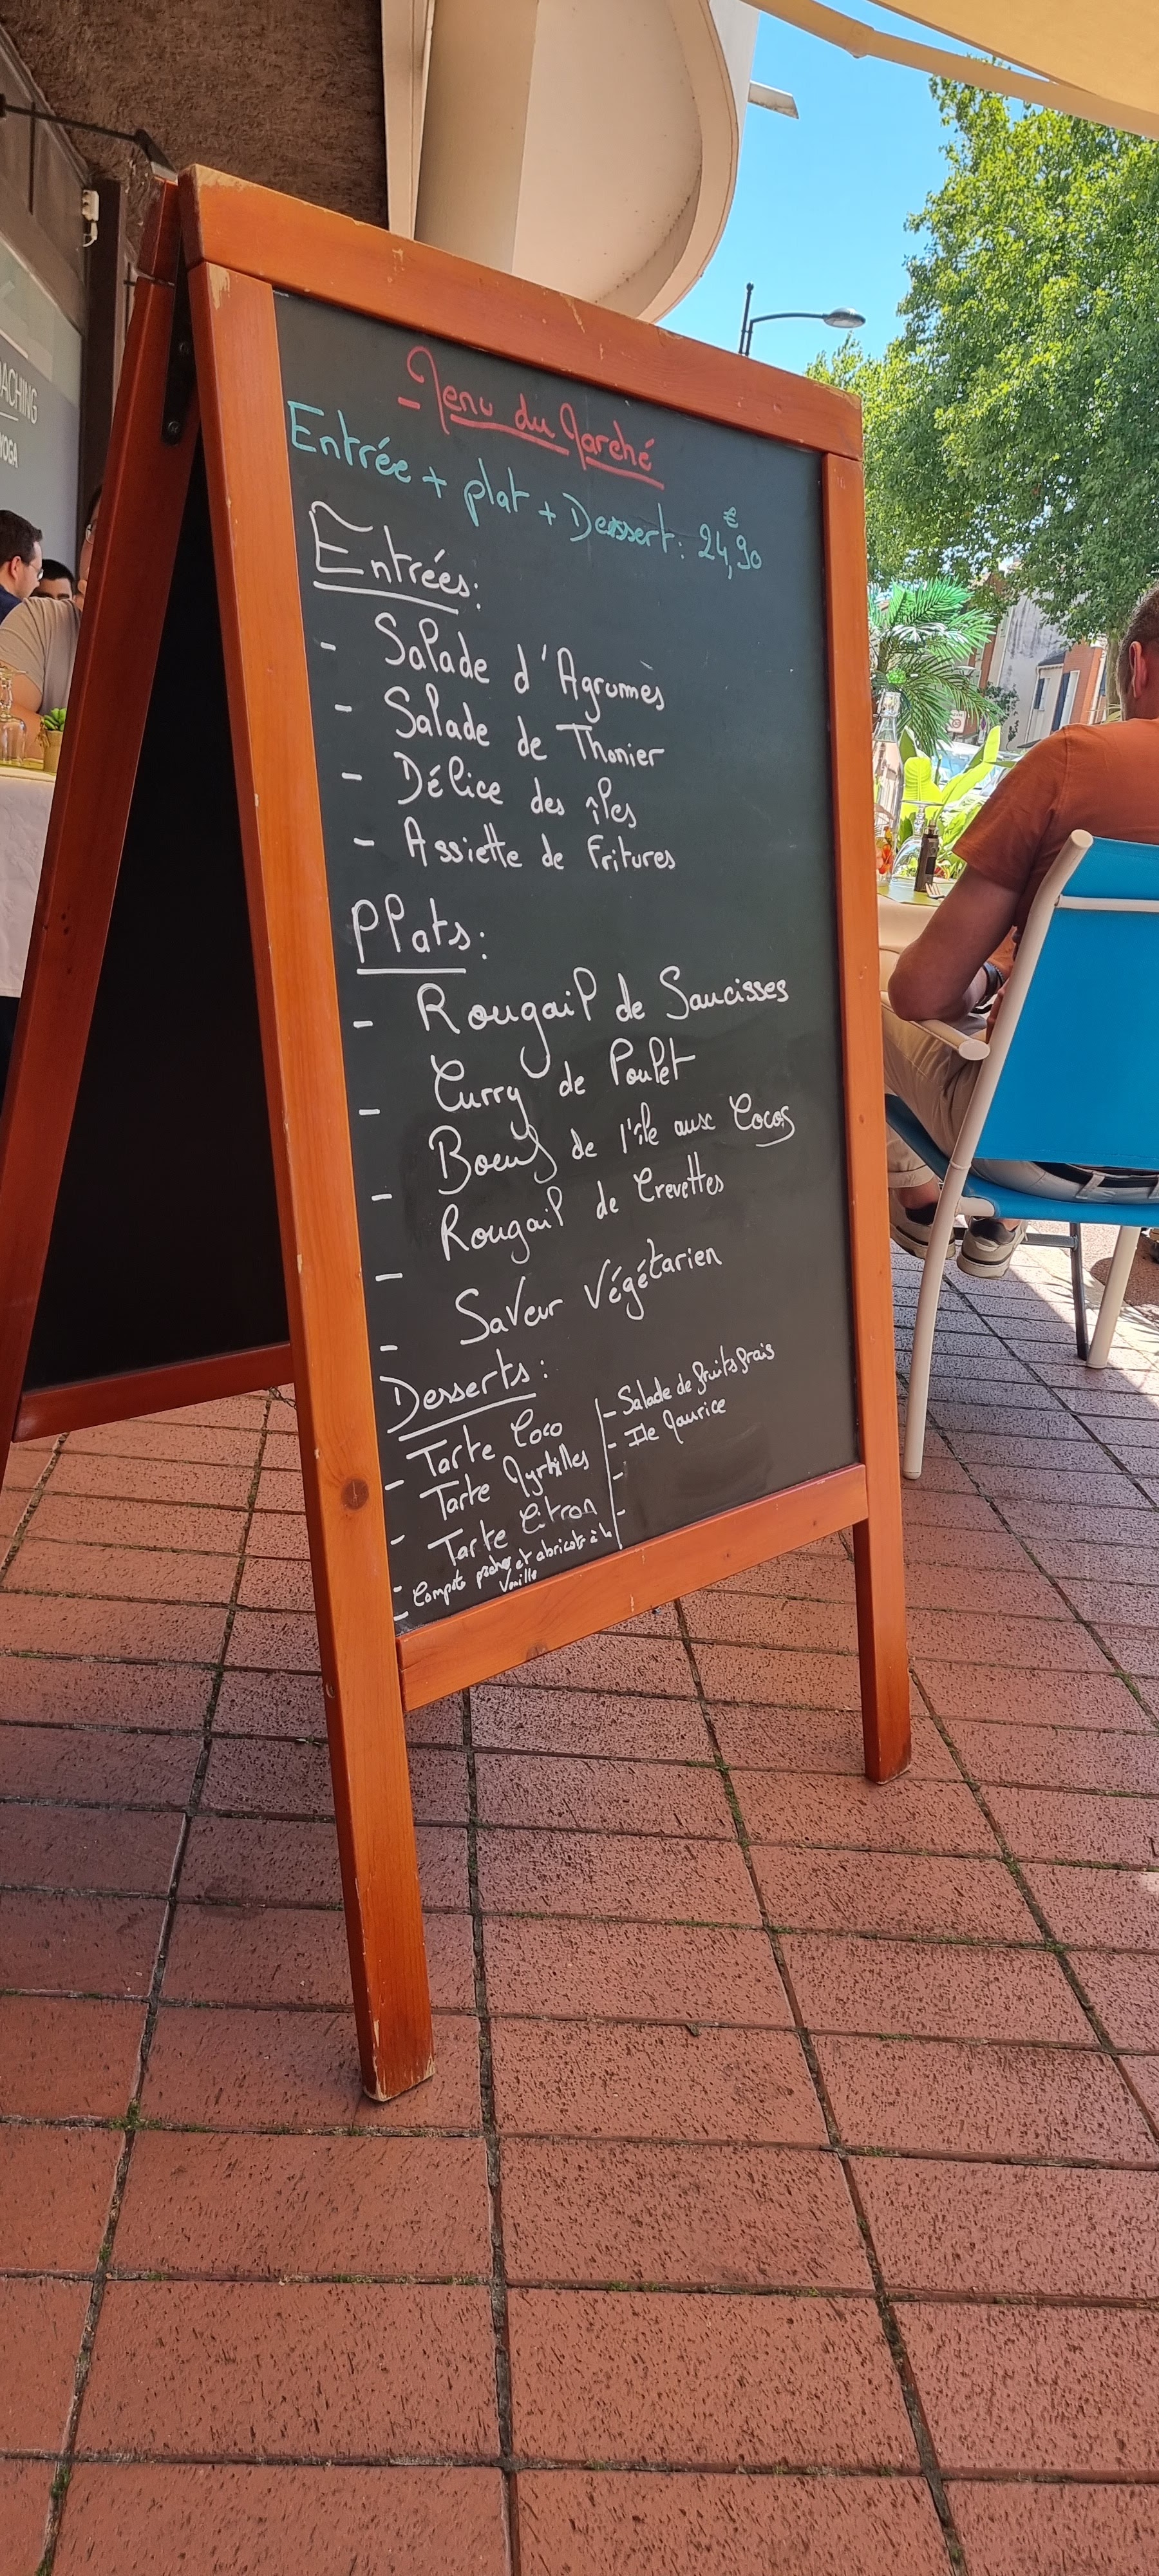 - Menu du Marché
Entrée + plat + Dessert: 24,90€
Entrées:
- Salade d'Agrumes
- Salade de Thonier
- Délice des îles
- Assiette de Fritures
Plats:
- Rougail de Saucisses
- Curry de Poulet
- Boeuf de l'île aux Cocos
- Rougail de Crevettes
- Saveur Végétarien
Desserts:
- Tarte Coco
- Tarte Myrtilles
- Tarte Citron
- Compote pêches et abricots à la
Vanille
- Salade de fruits frais
- Ile Maurice
-
-
OACHING
YOGA